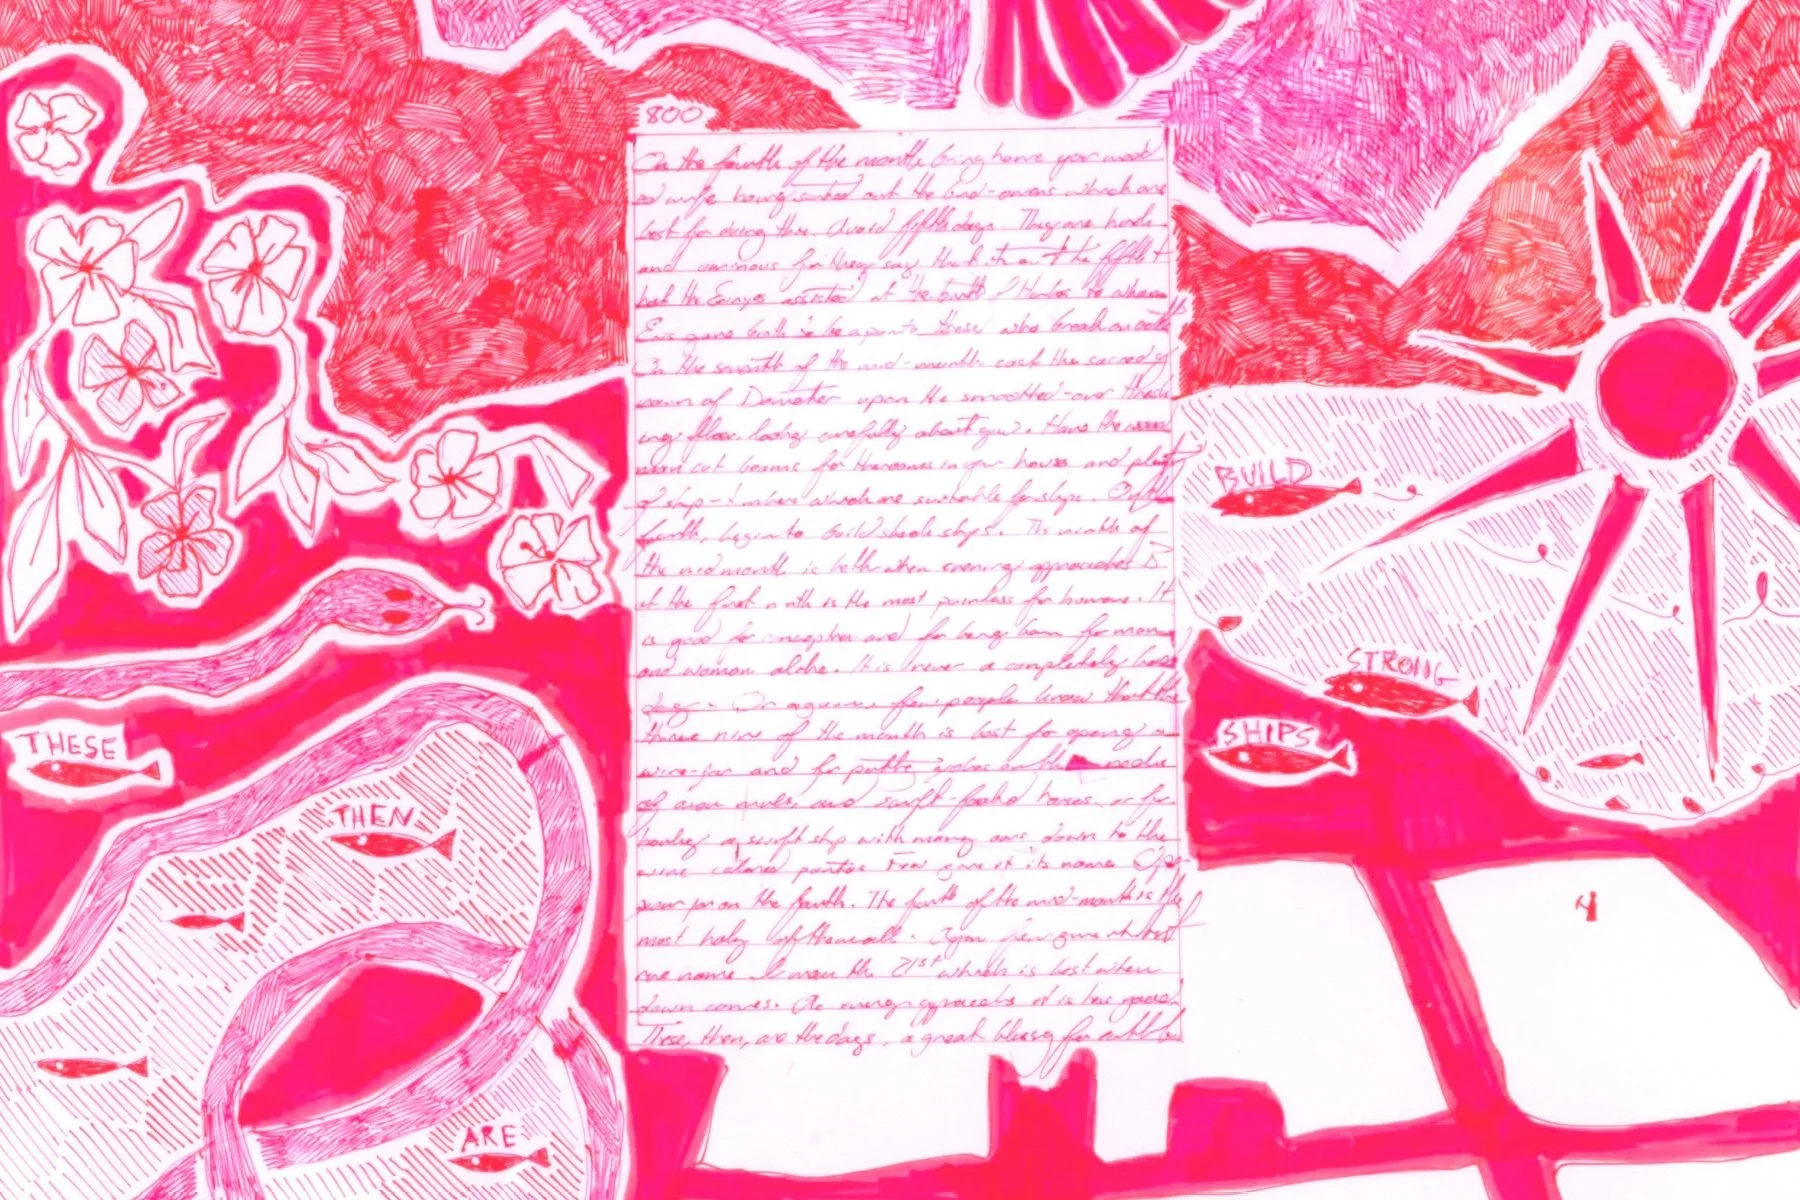 800
On the fourth of the month bring home your wedd
ed wife having sorted out the bird-omens which are
best for doing this. Avoid fifth days. They are harsh
and ominous for they say that it at the fifth t
hat the Erinyes assisted at the birth of Horkos he whom
Eris gave birth to be a pain to those who break an oath
On the seventh of the mid-month cast the sacred gr
own of Demeter upon the smoothed-over thresh
ing floor, looking carefully about you. Have the
man cut beams for the rooms in your house and plenty
of ship-timbers which are suitable for ships. On the
fourth, begin to build sleek ships. The ninth of
the mid month is better when evening approaches. B
ut the first ninth is the most painless for humans. It
is good for conception and for being born for man
and woman alike. It is never a completely bad
day. Or again, few people know that the
thrice nine of the month is best for opening a
wine-jar and for putting yokes on the necks
of oxen mules, and swift-footed horses, or for
hauling a swift ship with many oars down to the
wine colored pontos. Few give it its name. Open
your jar on the fourth. The fourth of the mid-month is the
most holy of them all. Again few give it its
name I mean the 21st which is best when
dawn comes. As evening approaches it is less good.
These, then, are the days, a great blessing for
BUILD
STRONG
SHIPS
THESE
THEN
ARE